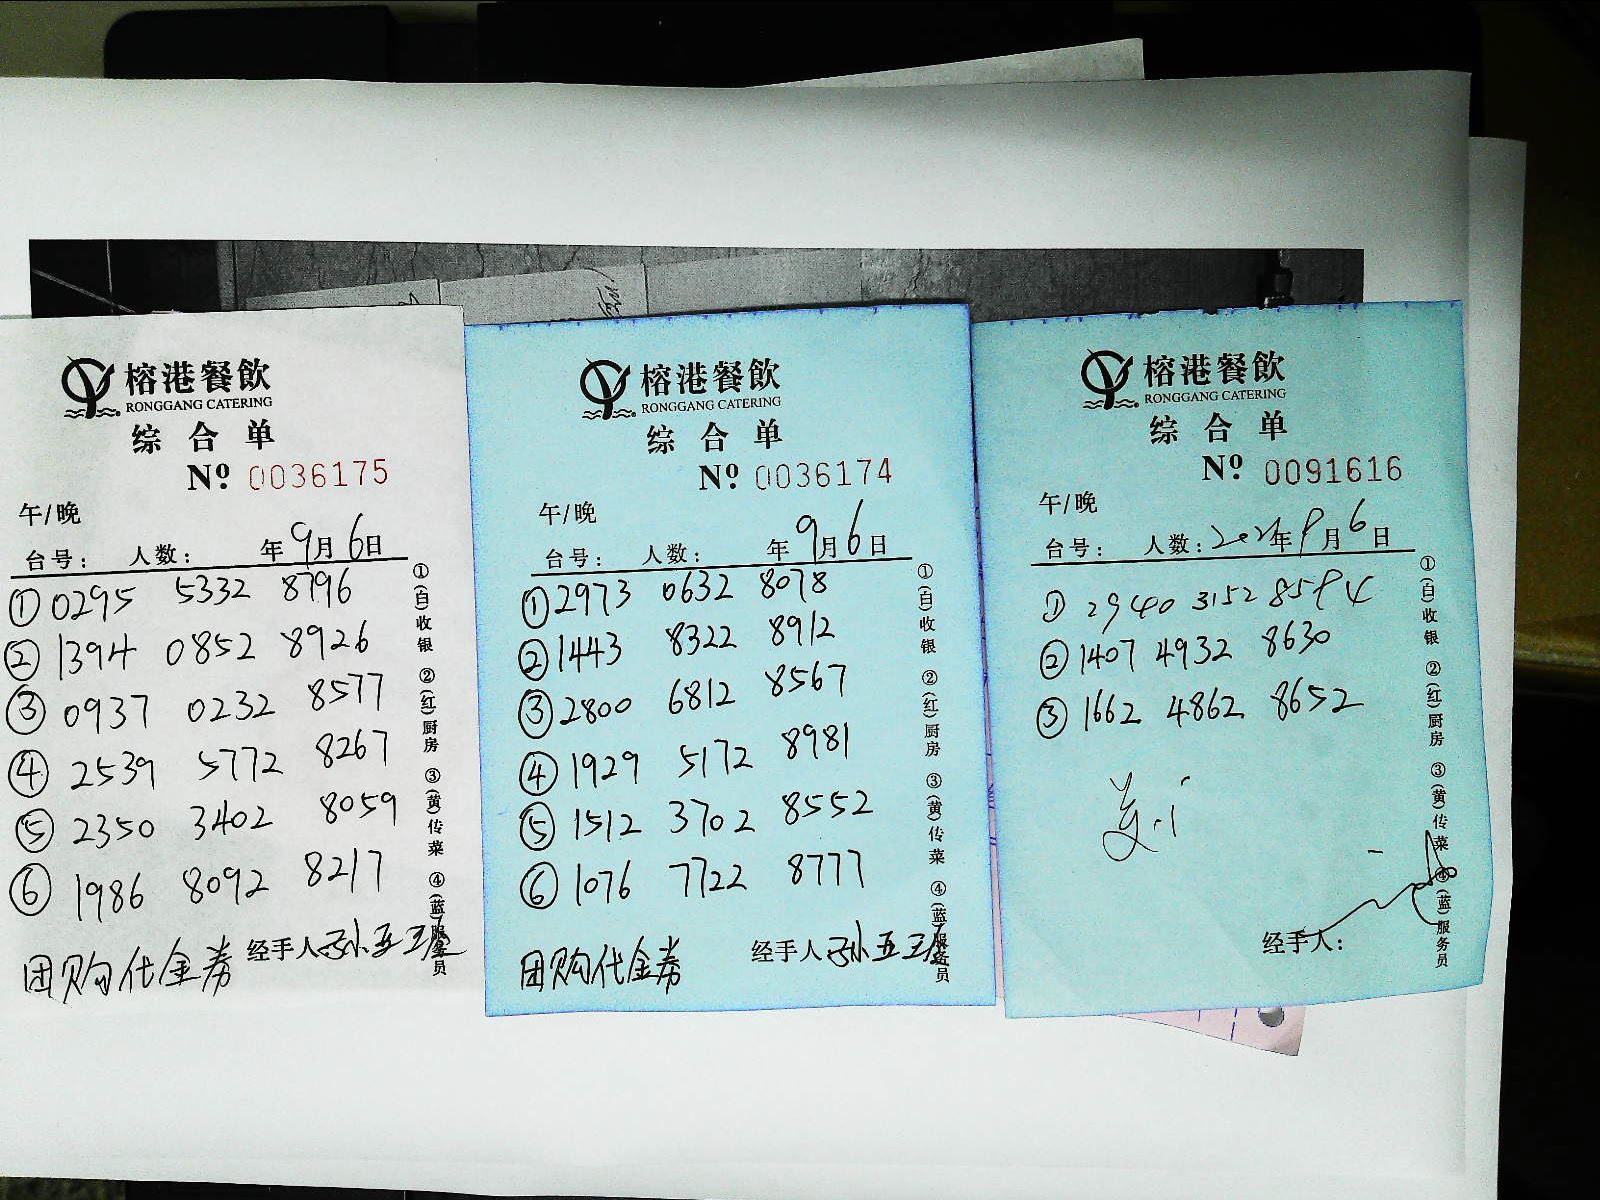 榕港餐飲
RONGGANG CATERING
综合单
Nº 0036175
午/晚
台号： 人数： 年9月6日
①0295 5332 8796
②1394 0852 8926
③0937 0232 8577
④2539 5772 8267
⑤2350 3402 8059
⑥1986 8092 8217
团购代金券 经手人
①(白)收银 ②(红)厨房 ③(黄)传菜 ④(蓝)服务员
榕港餐飲
RONGGANG CATERING
综合单
Nº 0036174
午/晚
台号： 人数： 年9月6日
①2973 0632 8078
②1443 8322 8912
③2800 6812 8567
④1929 5172 8981
⑤1512 3702 8552
⑥1076 7722 8777
团购代金券 经手人
①(白)收银 ②(红)厨房 ③(黄)传菜 ④(蓝)服务员
榕港餐飲
RONGGANG CATERING
综合单
Nº 0091616
午/晚
台号： 人数： 年9月6日
① 2940 3152 8594
②1407 4932 8630
③1662 4862 8652
经手人：
①(白)收银 ②(红)厨房 ③(黄)传菜 ④(蓝)服务员